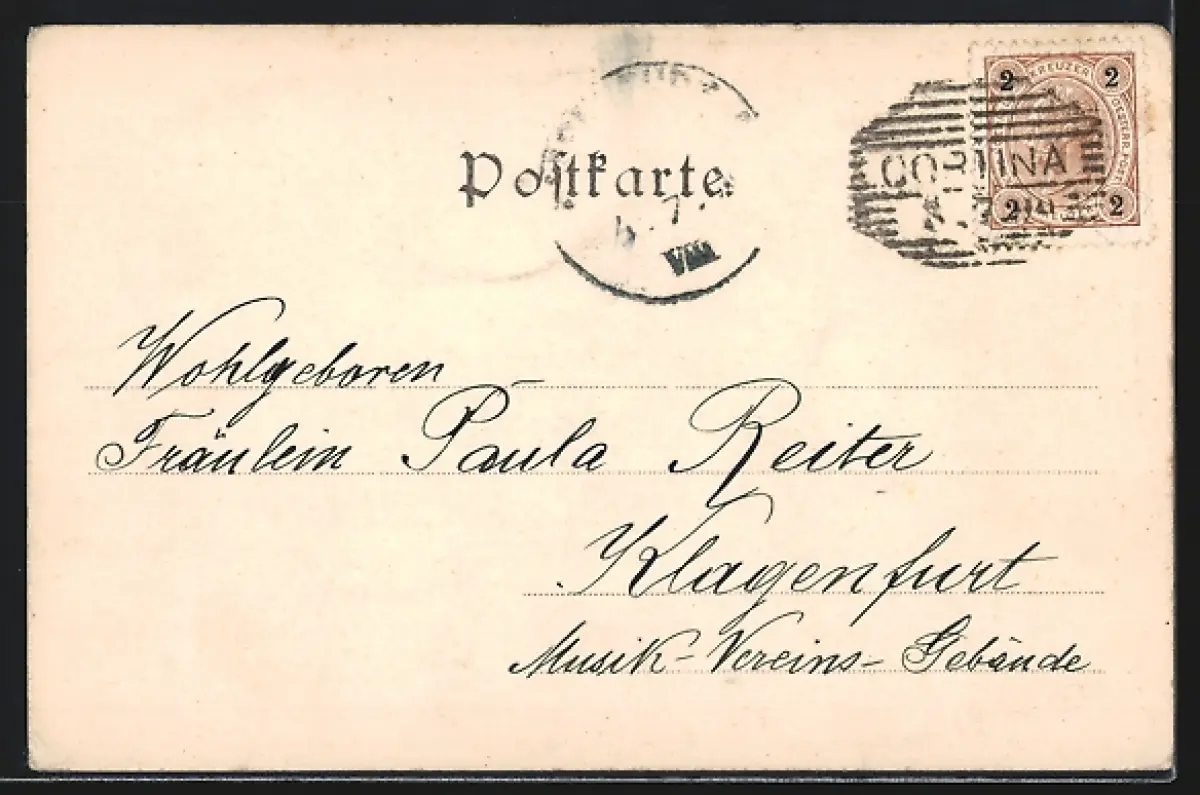 2 KREUZER 2
Postkarte.
CORTINA
2 2
VIII
Wohlgeboren
Fräulein Paula Reiter
Klagenfurt
Musik-Vereins-Gebäude